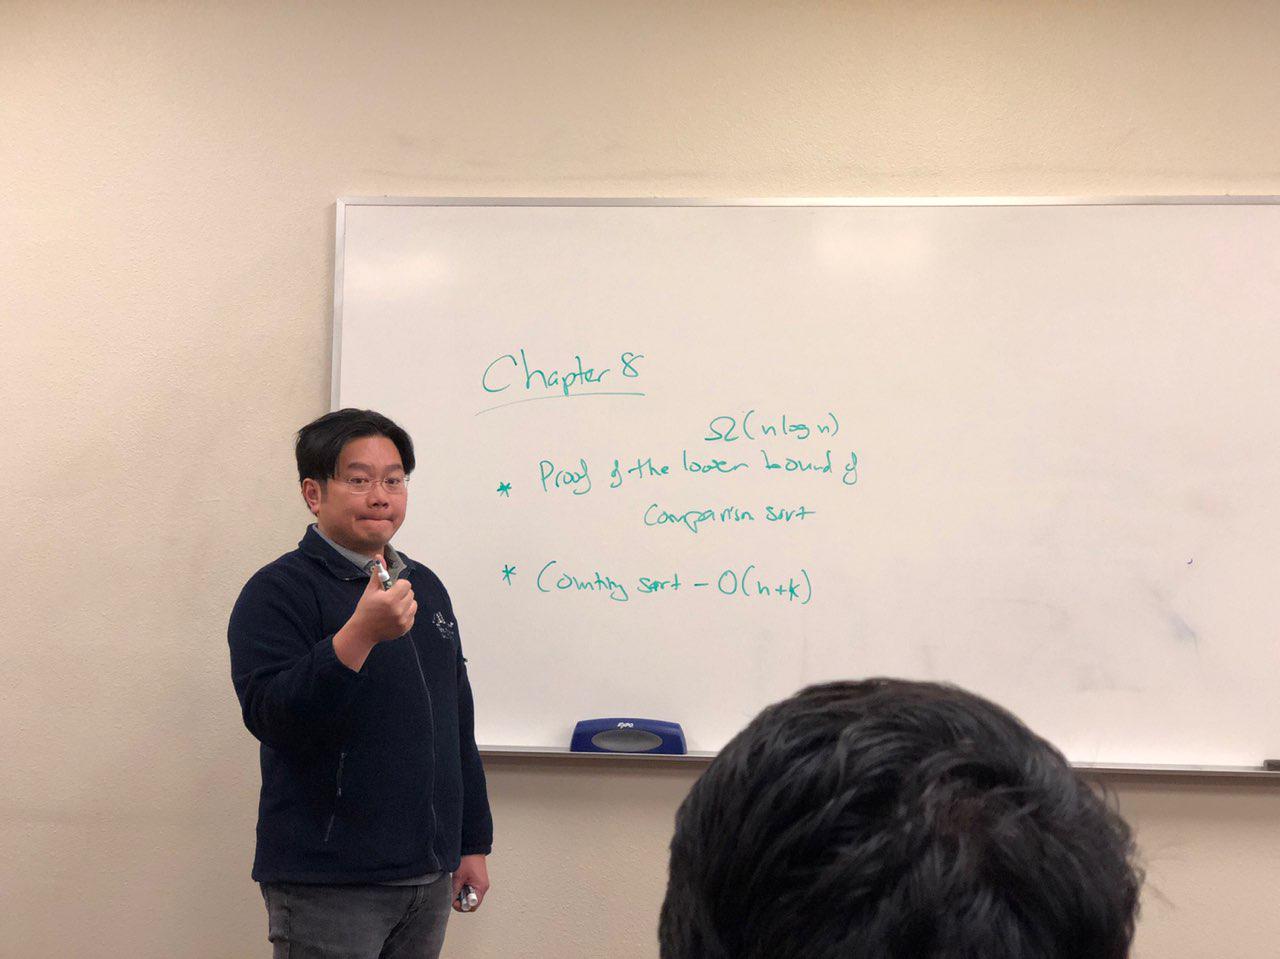 Chapter 8
Ω(n log n)
* Proof of the lower bound of
Comparison sort
* Counting sort - O(n+k)
EXPO